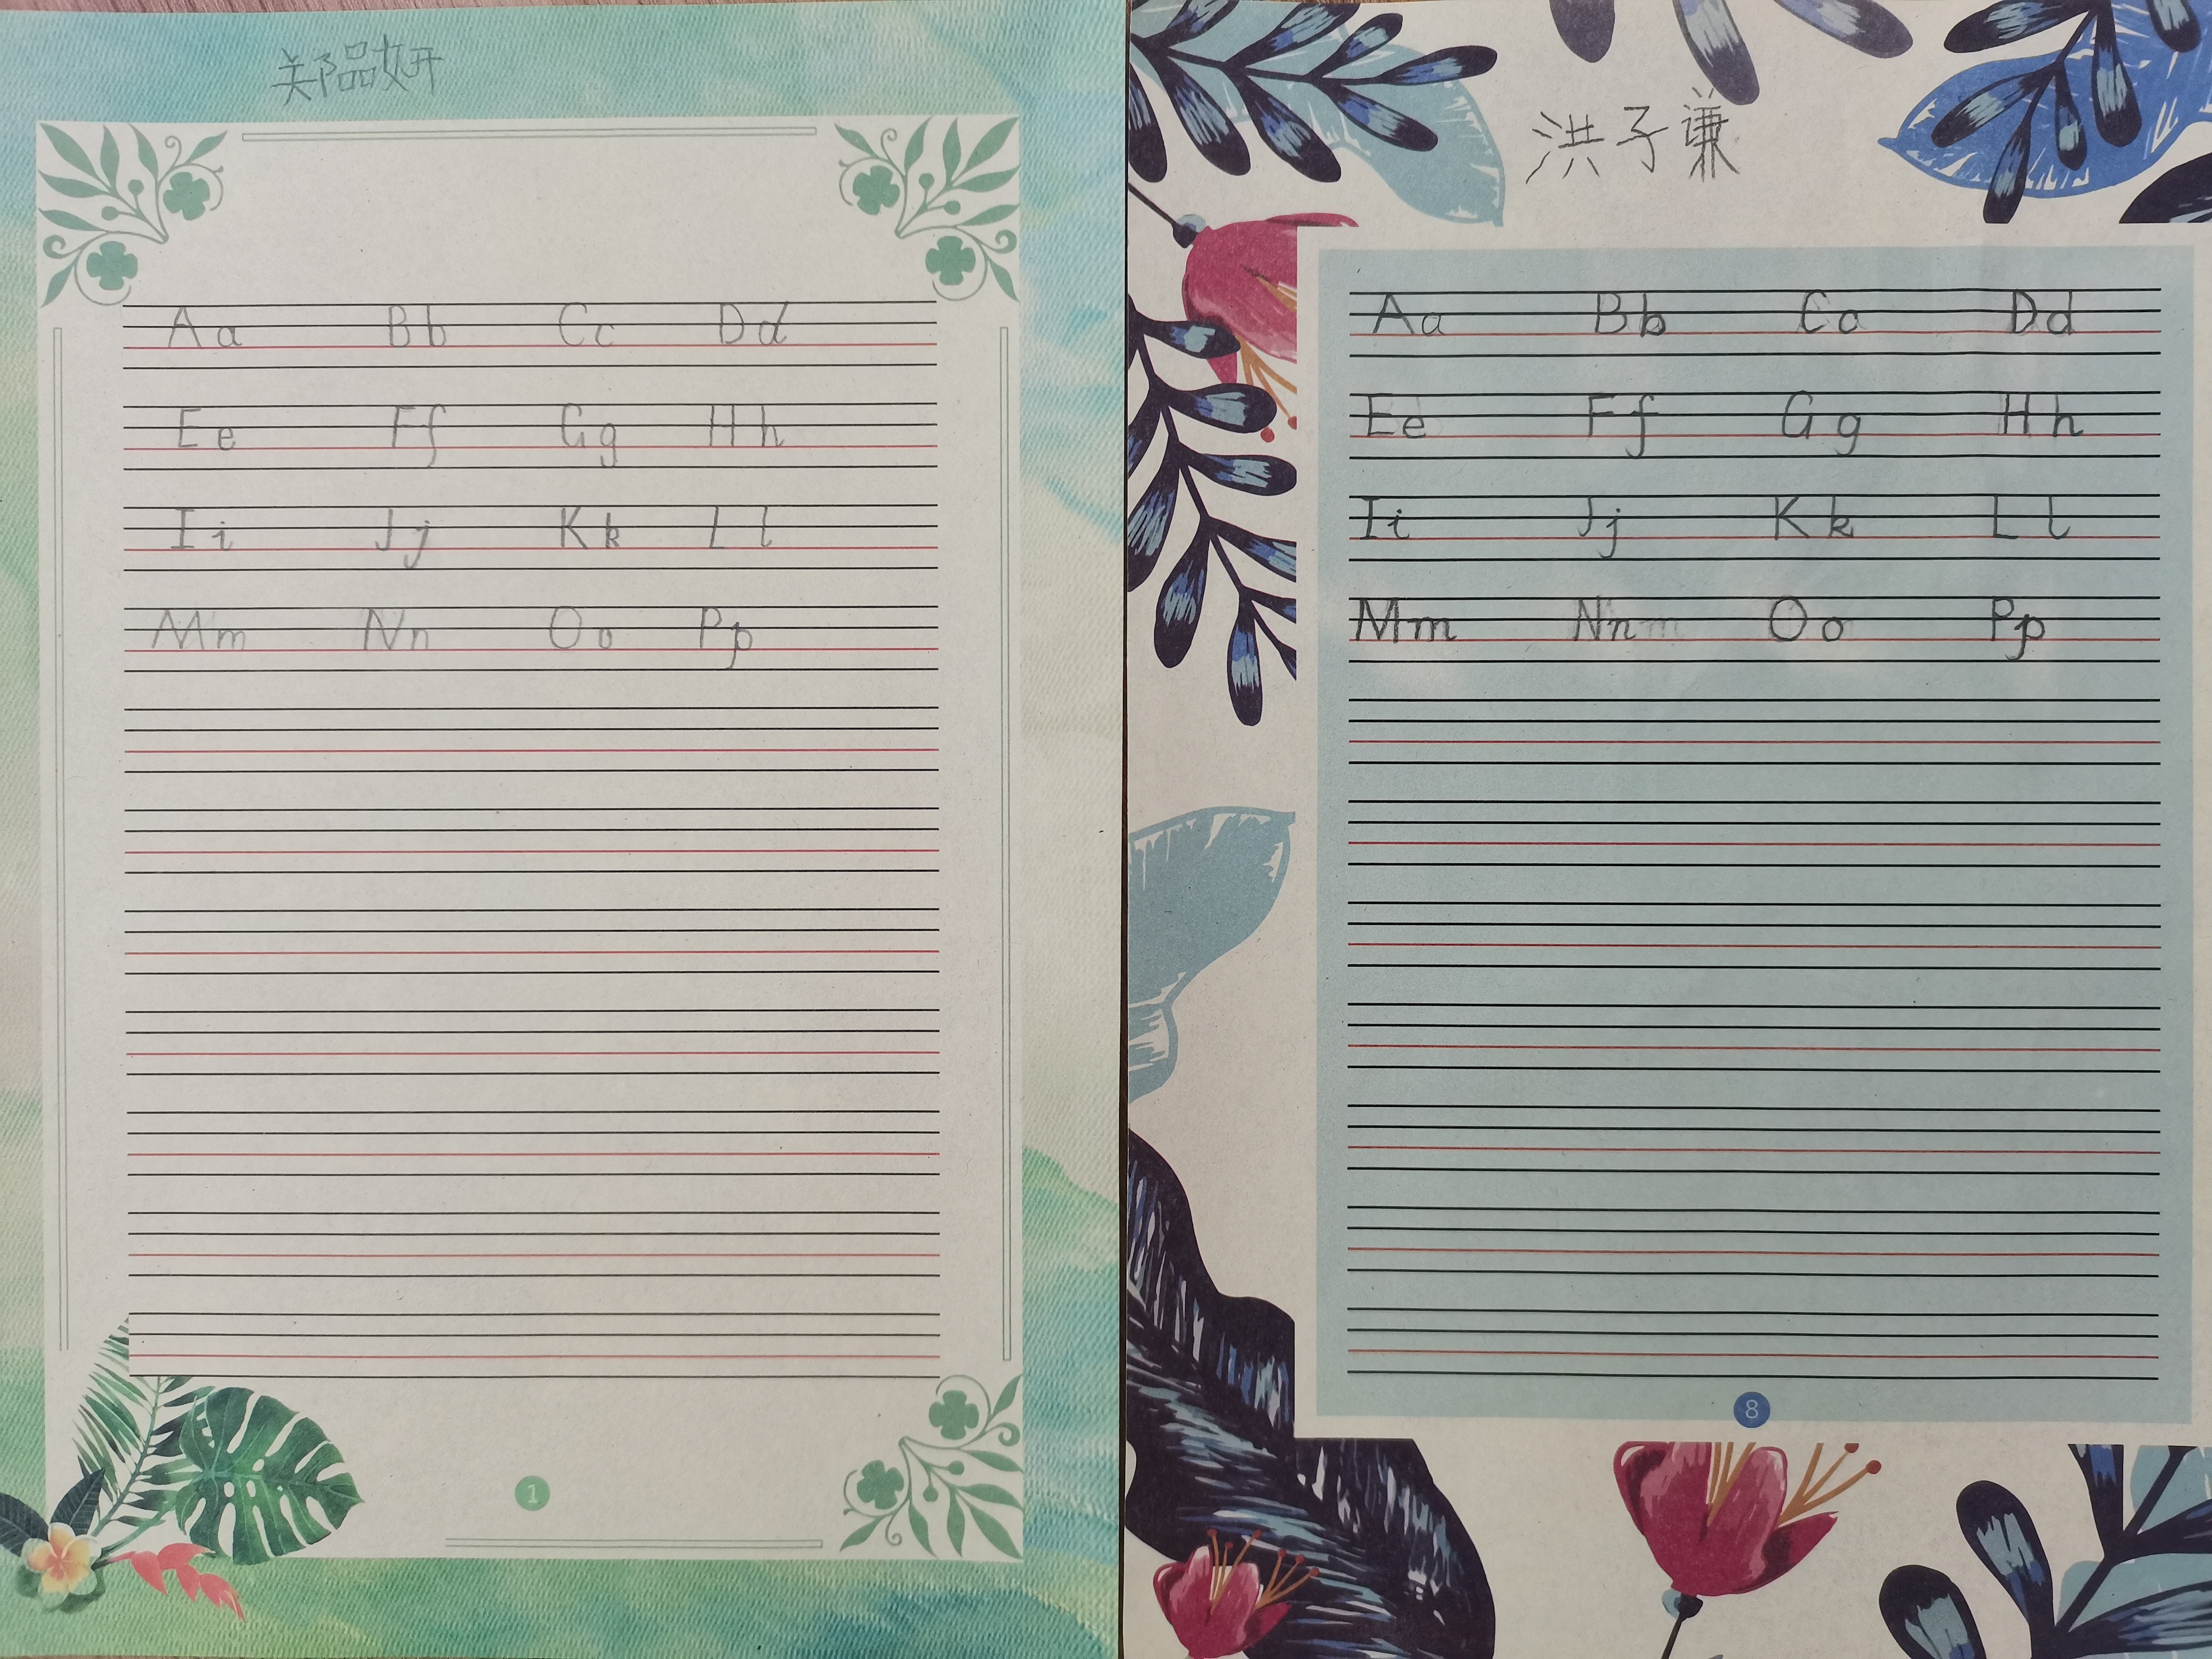 郑品妍
Aa Bb Cc Dd
Ee Ff Gg Hh
Ii Jj Kk Ll
Mm Nn Oo Pp
1
洪子谦
Aa Bb Cc Dd
Ee Ff Gg Hh
Ii Jj Kk Ll
Mm Nn Oo Pp
8